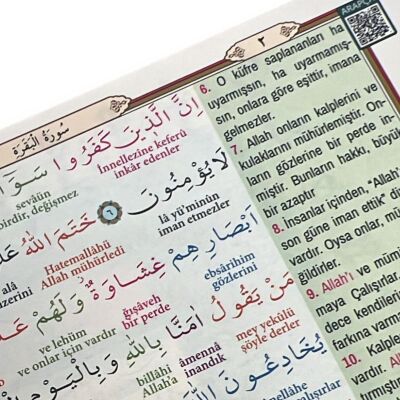 ARAPÇA
سُورَةُ الْبَقَرَةِ
٢
اِنَّ الَّذ۪ينَ كَفَرُوا سَوَٓا
İnnellezine keferû
inkâr edenler
sevâün
birdir, değişmez
لَا يُؤْمِنُونَ ٦ خَتَمَ اللّٰهُ
lâ yü'minûn
iman etmezler
Hatemallâhü
Allah mühürledi
اَبْصَارِهِمْ غِشَاوَةٌ وَلَهُمْ
ebsârihim
gözlerini
ğışâveh
bir perde
ve lehüm
ve onlar için vardır
مَنْ يَقُولُ اٰمَنَّا بِاللّٰهِ وَبِالْيَوْمِ
mey yekûlü
şöyle derler
âmennâ
inandık
billâhi
Allah'a
يُخَادِعُونَ اللّٰهَ
6. O küfre saplananları
uyarmışsın, ha uyarmamış-
sın, onlara göre eşittir, imana
gelmezler.
7. Allah onların kalplerini ve
kulaklarını mühürlemiştir. On-
ların gözlerine bir perde in-
miştir. Bunların hakkı, büyük
bir azaptır
8. İnsanlar içinden, "Allah'
son güne iman ettik"
vardır. Oysa onlar,
ğildirler.
9. Allah'ı ve
maya Çalışırlar.
dece kendilerin
farkına varma
10. Kalple
vardır.